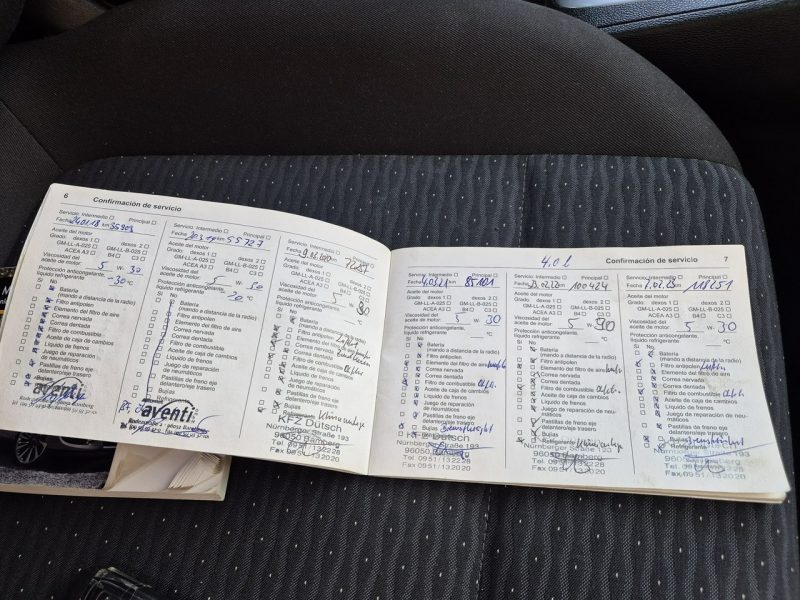 6
Confirmación de servicio
Servicio: Intermedio Principal
Fecha 24.01.18 km 35903
Aceite del motor
Grado: dexos 1 dexos 2
GM-LL-A-025 GM-LL-B-025
ACEA A3 B4 C3
Viscosidad del
aceite de motor: 5 W- 30
Protección anticongelante,
líquido refrigerante -30 °C
Sí No
Batería
(mando a distancia de la radio)
Filtro antipolen
Elemento del filtro de aire
Correa nervada
Correa dentada
Filtro de combustible
Aceite de caja de cambios
Líquido de frenos
Juego de reparación
de neumáticos
Pastillas de freno eje
delantero/eje trasero
Bujías
aventi
Servicio: Intermedio Principal
Fecha km 55727
Aceite del motor
Grado: dexos 1 dexos 2
GM-LL-A-025 GM-LL-B-025
ACEA A3 B4 C3
Viscosidad del
aceite de motor: 5 W-
Protección anticongelante,
líquido refrigerante °C
Sí No
Batería
(mando a distancia de la radio)
Filtro antipolen
Elemento del filtro de aire
Correa nervada
Correa dentada
Filtro de combustible
Aceite de caja de cambios
Líquido de frenos
Juego de reparación
de neumáticos
Pastillas de freno eje
delantero/eje trasero
Bujías
aventi
Servicio: Intermedio Principal
Fecha km
Aceite del motor
Grado: dexos 1 dexos 2
GM-LL-A-025 GM-LL-B-025
ACEA A3 B4 C3
Viscosidad del
aceite de motor: 5 W-
Protección anticongelante,
líquido refrigerante °C
Sí No
Batería
(mando a distancia de la radio)
Filtro antipolen
Elemento del filtro de aire
Correa nervada
Correa dentada
Filtro de combustible
Aceite de caja de cambios
Líquido de frenos
Juego de reparación
de neumáticos
Pastillas de freno eje
delantero/eje trasero
Bujías
Refrigerante
KFZ Dütsch
Nürnberger Straße 193
96050 Bamberg
Tel. 09 51/13 22 28
Fax 09 51/13 20 20
4,0 l
Confirmación de servicio
7
Servicio: Intermedio Principal
Fecha km 85101
Aceite del motor
Grado: dexos 1 dexos 2
GM-LL-A-025 GM-LL-B-025
ACEA A3 B4 C3
Viscosidad del
aceite de motor: 5 W- 30
Protección anticongelante,
líquido refrigerante °C
Sí No
Batería
(mando a distancia de la radio)
Filtro antipolen
Elemento del filtro de aire
Correa nervada
Correa dentada
Filtro de combustible
Aceite de caja de cambios
Líquido de frenos
Juego de reparación
de neumáticos
Pastillas de freno eje
delantero/eje trasero
Bujías
KFZ Dütsch
Nürnberger Straße 193
96050 Bamberg
Tel. 09 51/13 22 28
Fax 09 51/13 20 20
Servicio: Intermedio Principal
Fecha km 100424
Aceite del motor
Grado: dexos 1 dexos 2
GM-LL-A-025 GM-LL-B-025
ACEA A3 B4 C3
Viscosidad del
aceite de motor: 5 W- 30
Protección anticongelante,
líquido refrigerante °C
Sí No
Batería
(mando a distancia de la radio)
Filtro antipolen
Elemento del filtro de aire
Correa nervada
Correa dentada
Filtro de combustible
Aceite de caja de cambios
Líquido de frenos
Juego de reparación
de neumáticos
Pastillas de freno eje
delantero/eje trasero
Bujías
Refrigerante Klimaanlage
Nürnberger Straße 193
96050 Bamberg
Tel. 09 51/13 22 28
Fax 09 51/13 20 20
Servicio: Intermedio Principal
Fecha 7.02.23 km 118251
Aceite del motor
Grado: dexos 1 dexos 2
GM-LL-A-025 GM-LL-B-025
ACEA A3 B4 C3
Viscosidad del
aceite de motor: 5 W- 30
Protección anticongelante,
líquido refrigerante °C
Sí No
Batería
(mando a distancia de la radio)
Filtro antipolen
Elemento del filtro de aire
Correa nervada
Correa dentada
Filtro de combustible
Aceite de caja de cambios
Líquido de frenos
Juego de reparación de neu-
máticos
Pastillas de freno eje
delantero/eje trasero
Bujías
Refrigerante
Nürnberger Straße 193
96050 Bamberg
Tel. 09 51/13 22 28
Fax 09 51/13 20 20